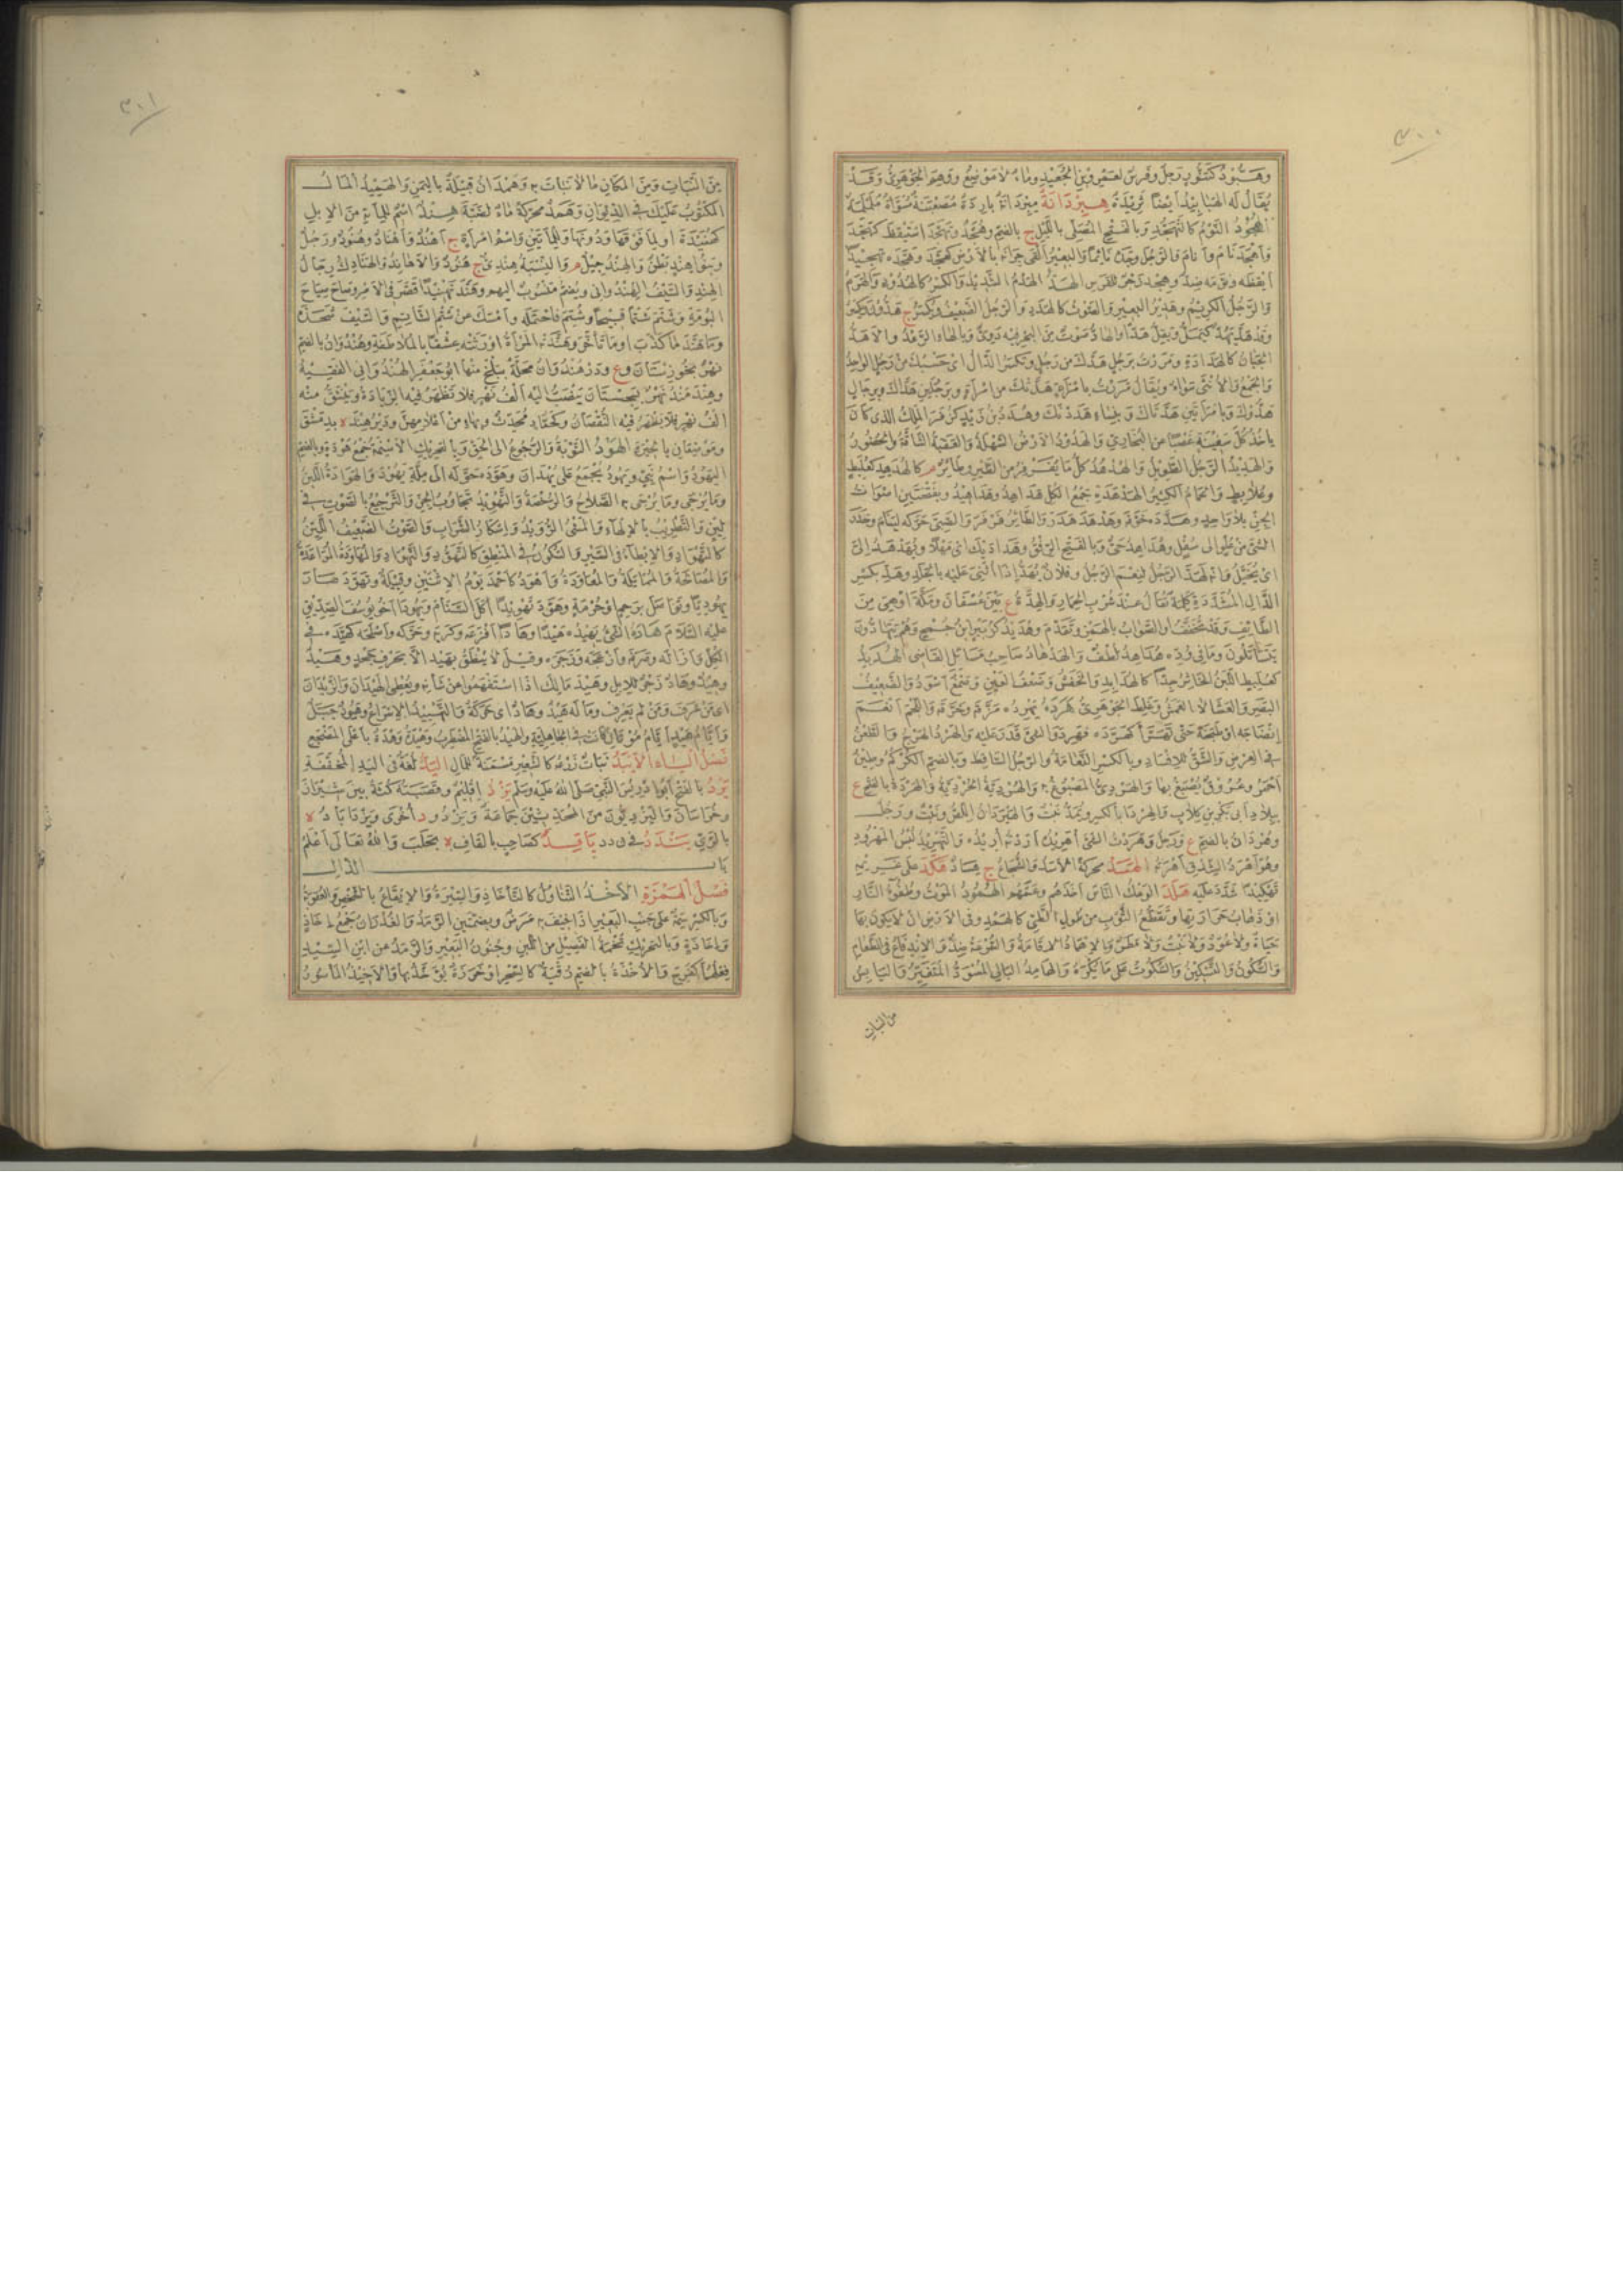 ٣٠٠
وهبود كتنور رجل وفرس لعمرو بن الجعيد وماء لا موضع ووهم الجوهري وقد
يقال له الهبابيد أيضا ثريدة هبردانة مبردانة باردة مصعنبة مسواة ململمة
الهجود النوم كالتهجد وبالفتح المصلي بالليل ج بالضم وهجد وتهجد استيقظ كهجد
وأهجد نام وأنام والرجل وجده نائما والبعير ألقى جرانه بالأرض كهجد وهجده تهجيدا
أيقظه ونومه ضد وهجد زجر للفرس الهد الهدم الشديد والكسر كالهدود والهرم
والرجل الكريم وهدير البعير والصوت الغليظ كالهدد والرجل الضعيف ويكسر ج هدون ويكسر
وقد هد يهد كيمل ويقل هدا والهاد صوت من البحر فيه دوي وبالهاء الرعد والأهد
الجبان كالهدادة ومررت برجل هدك من رجل وتكسر الدال أي حسبك من رجل الواحد
والجمع والأنثى سواء ويقال مررت بامرأة هدتك من امرأة وبرجلين هداك وبرجال
هدوك وبامرأتين هدتاك وبنساء هددنك وهدد بن بدد كزفر الملك الذي كان
يأخذ كل سفينة غصبا عن البخاري والهدود الأرض السهلة والعقبة الشاقة والحدور
والهديد الرجل الطويل والهدهد كل ما يقرقر من الطير وطائر م كالهدهد كعلبط
وعلابط والحمام الكثير الهدهدة جمع الكل هداهد وهداهيد وبفتحتين أصوات
الجن بلا واحد وهدده خوفه وهدهد هدر والطائر قرقر والصبي حركه لينام وحدر
الشيء من علو إلى سفل وهداهد حي وبالفتح الرفق وهداديك أي مهلا ويهدهد إلي
أي يخيل وإنه لهد الرجل لنعم الرجل وفلان يهد إذا أثني عليه بالجلد وهد بكسر
الدال المشددة كلمة تقال عند شرب الحمار والهدة ع بين عسفان ومكة أو هي من
الطائف وقد تخفف أو الصواب بالهمز وتقدم وهديد كزبير ابن جمح وهم يتهادون
يتساتلون وما في وده هداهد لطف والهدهاد صاحب مسائل القاضي الهدبد
كعلبط اللبن الخاثر جدا كالهدابد والخفش وضعف العين وصمغ أسود والضعيف
البصر والعشا لا العمش وغلط الجوهري هرده يهرده مزقه وخرقه واللحم أنعم
إنضاجه أو طبخه حتى تهرأ كهرده فهرد والشيء قدر عليه والهرد الهرج والطعن
في العرض والشق للإفساد وبالكسر النعامة والرجل الساقط وبالضم الكركم وطين
أحمر وعروق يصبغ بها والهردي المصبوغ به والهردية الحردية والهردة بالفتح ع
ببلاد أبي بكر بن كلاب والهردا بالكسر ويمد نبت والهيردان اللص ونبت ورجل
وهردان بالضم ع ورجل وهردت الشيء أهريده أردته أريده والتهريد لبس المهرود
وهو أهرد الشدق أهرته الهسد محركة الأسد والشجاع ج هساد هكد على غريمه
تهكيدا شدد عليه هلد الوعك الناس أخذهم وعمهم الهمود الموت وطفوء النار
أو ذهاب حرارتها وتقطع الثوب من طول الطي كالهمد وفي الأرض أن لا يكون بها
حياة ولا عود ولا نبت ولا مطر والإهماد الإقامة والسرعة ضد والاندفاع في الطعام
والسكون والتسكين والسكوت على ما يكره والهامد البالي المسود المتغير واليابس
من النبات
٣٠١
من النبات ومن المكان ما لا نبات به وهمدان قبيلة باليمن والهميد المال
المكتوب عليك في الديوان وهمد محركة ماء لضبة هند اسم للمائة من الإبل
كهنيدة أو لما فوقها ودونها وللمائتين واسم امرأة ج أهند وأهناد وهنود ورجل
وبنو هند بطن والهند جيل م والنسبة هندي ج هنود والأهاند والهنادك رجال
الهند والسيف الهندواني ويضم منسوب إليهم وهند تهنيدا قصر في الأمر وصاح صياح
البومة وشتم شتما قبيحا وشتم فاحتمله وأمسك عن شتم الشاتم والسيف شحذه
وما هند لما كذب أو ما تأخر وهندته المرأة أورثته عشقا بالملاطفة وهندوان بالضم
نهر بخوزستان وع ودرهندوان محلة ببلخ منها أبو جعفر الهندواني الفقيه
وهند مند نهر بسجستان ينصب إليه ألف نهر فلا تظهر فيه الزيادة وينشق منه
ألف نهر فلا يظهر فيه النقصان وكحماد محدث وهناد من أعلامهن ودير هند لا بدمشق
وموضعان بالحيرة الهود التوبة والرجوع إلى الحق وبالتحريك الأسنمة جمع هودة وبالضم
اليهود واسم نبي ويهود يجمع على يهدان وهوده حوله إلى ملة يهود والهوادة اللين
وما يرجى به الصلاح والرخصة والتهويد تجاوب الجن والترجيع بالصوت في
لين والتطريب بالإلهاء والمشي الرويد وإسكار الشراب والصوت الضعيف اللين
كالتهواد والإبطاء في السير والسكون في المنطق كالتهود والتهواد والمهاودة المواعدة
والمصالحة والممايلة والمعاودة وأهود كأحمد يوم الاثنين وقبيلة وتهود صار
يهوديا وتوصل برحم أو حرمة وهود تهويدا أكل السنام ويهودا أخو يوسف الصديق
عليه السلام هاده الشيء يهيده هيدا وهادا أفزعه وكربه وحركه وأصلحه كهيده في
الكل وأزاله وصرفه وأزعجه وزجره وقيل لا ينطق بيهيد إلا بحرف جحد وهيد
وهيد وهاد زجر للإبل وهيد مالك إذا استفهموا عن شأنه ويعطي الهيدان والزيدان
أي من عرف ومن لم يعرف وما له هيد وهاد أي حركة والتهييد الإسراع وهيود جبل
وأيام هيد أيام موتان كانت في الجاهلية والهيد بالفتح المضطرب وهيدة وهدة بأعلى المضجع
فصل الياء الأيبد نبات زرعه كالشعير مسمنة للمال اليد لغة في اليد المخففة
يرد بالفتح أبو إدريس النبي صلى الله عليه وسلم يزد إقليم وقصبته كثة بين شيراز
وخراسان واليزديون من المحدثين جماعة ويزدود أخرى ويزداباد لا
بالري يندد في د د ياقد كصاحب بالقاف لا بحلب والله تعالى أعلم
باب الذال
فصل الهمزة الأخذ التناول كالتأخاذ والسيرة والإيقاع بالشخص والعقوبة
وبالكسر سمة على جنب البعير إذا خيف به مرض وبضمتين الرمد والغدران جمع إخاذ
وإخاذة وبالتحريك تخمة الفصيل من اللبن وجنون البعير والرمد عن ابن السيد
فعلهما كفرح والأخذة بالضم رقية كالسحر أو خرزة يؤخذ بها والأخيذ المأسور